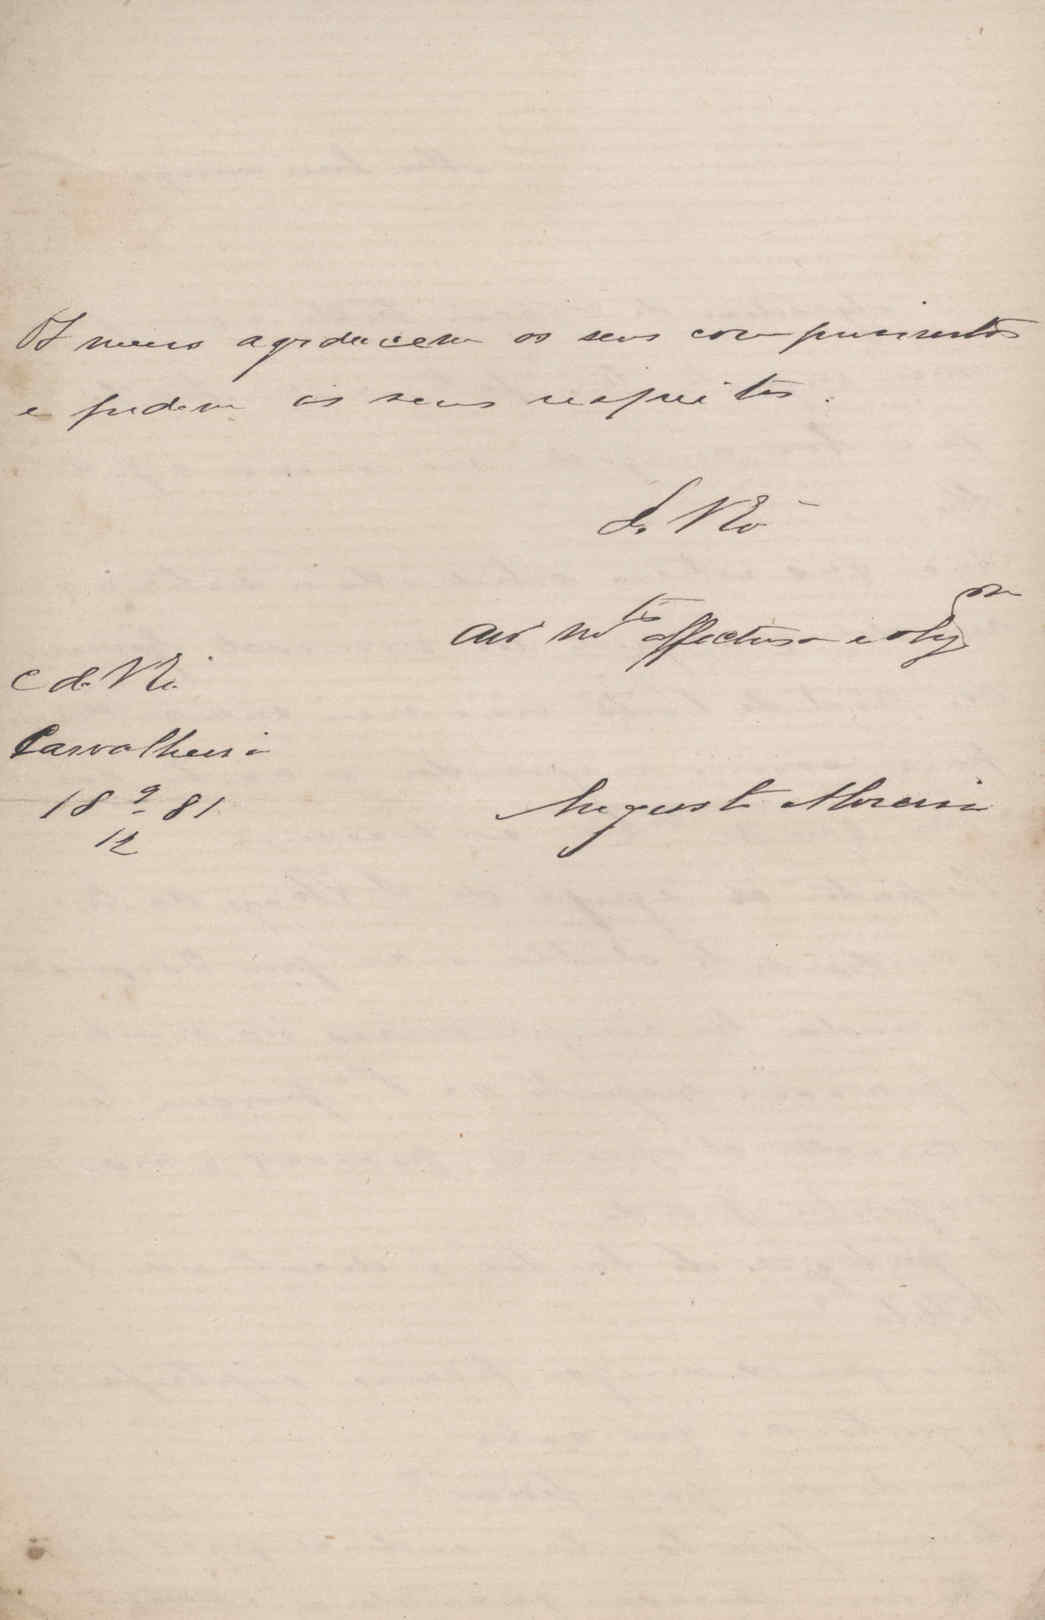 Os meus agradecem os seus comprimentos
e pedem os seus respeitos.
De V Ex.ª
am.º m.to affectuoso e obg.mo
C de V Ex.ª
Carvalheira
18 9/12 81
Augusto Moreira